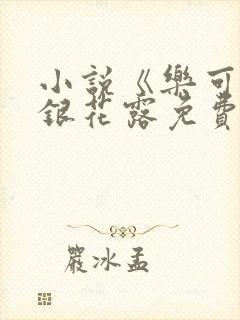 小説《樂可
銀花露免費
嚴冰孟